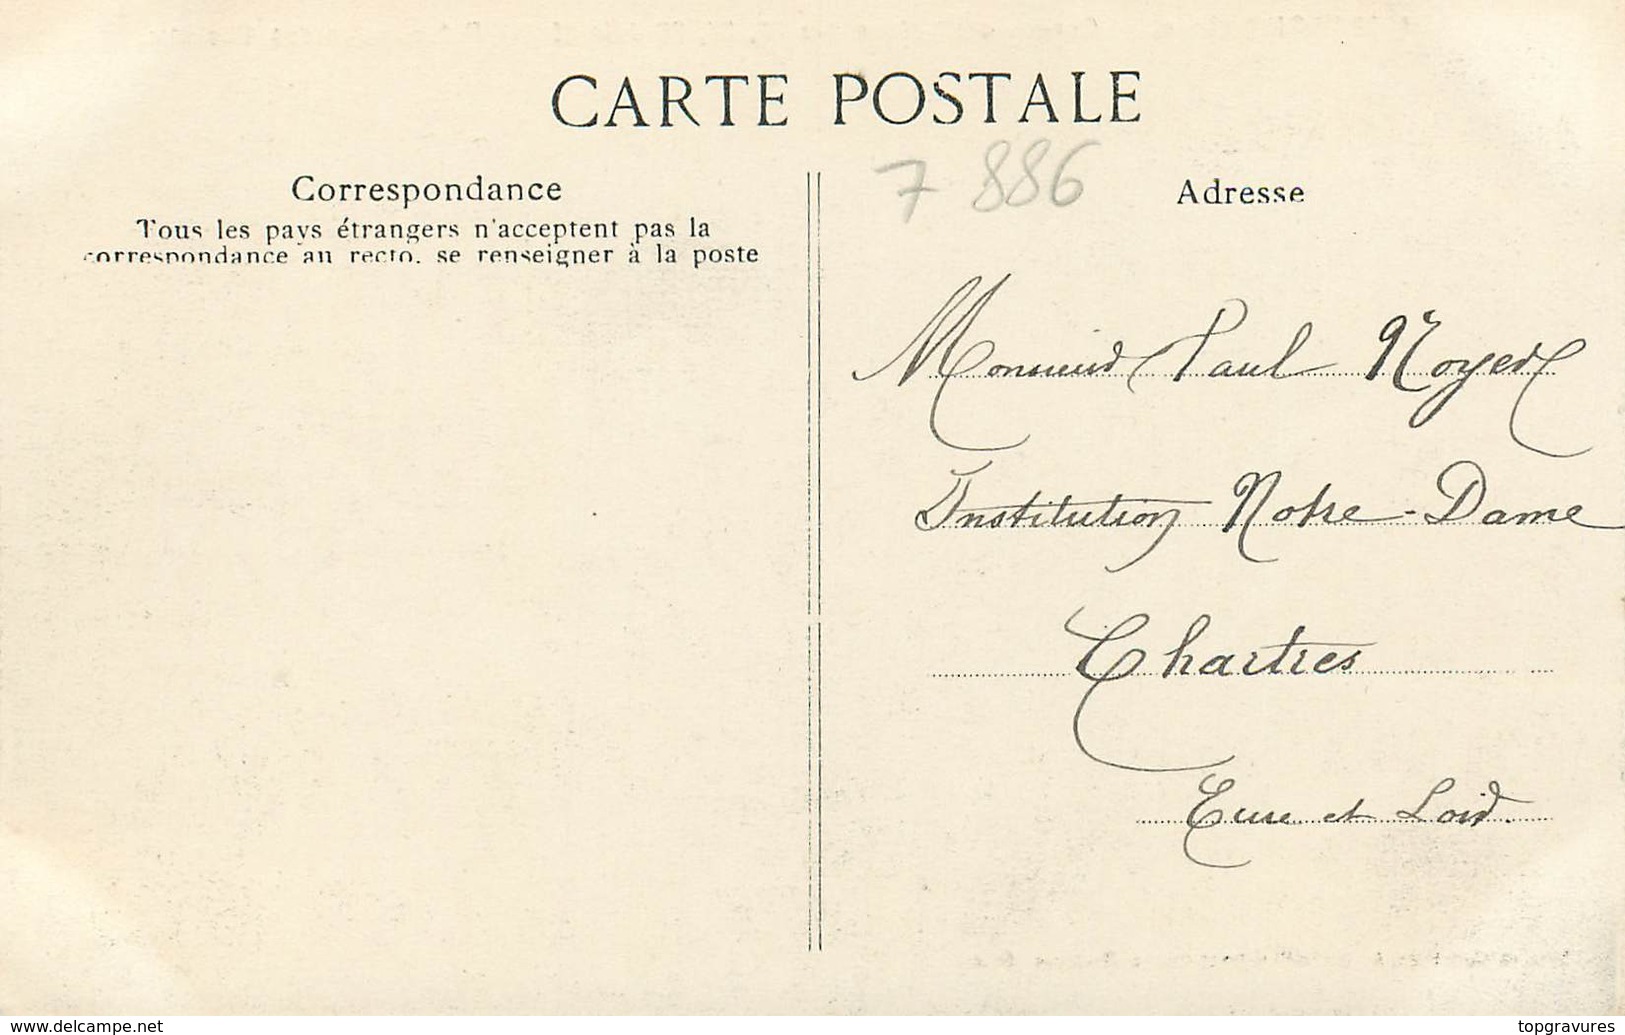 CARTE POSTALE
7 886
Correspondance
Tous les pays étrangers n'acceptent pas la
correspondance au recto, se renseigner à la poste
Adresse
Monsieur Paul Noyer
Institution Notre-Dame
Chartres
Eure et Loir.
www.delcampe.net
topgravures